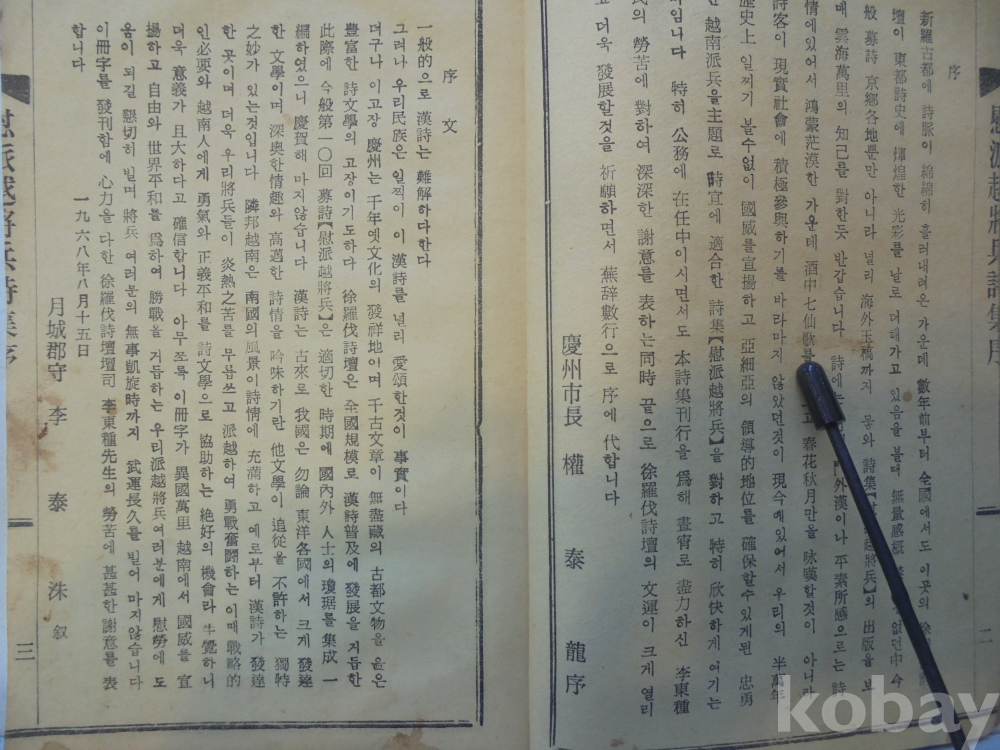 序
新羅古都에 詩脈이 綿綿히 흘러내려온 가운데 數年前부터 全國에서도 이곳의
壇이 東都詩史에 煇煌한 光彩를 날로 더해가고 있음을 볼때 無量感慨 없던中 今
般 募詩 京鄕各地뿐만 아니라 널리 海外玉稿까지 모와 詩集 越將兵】의 出版을 보
매 雲海萬里의 知己를 對한듯 반갑습니다 詩에는 門外漢이나 平素所感으로는 詩
情에있어서 鴻蒙茫漠한 가운데 酒中七仙歌를 春花秋月만을 咏嘆할것이 아니라
詩客이 現實社會에 積極參與하기를 바라마지 않았던것이 現今에있어서 우리의 半萬年
歷史上 일찌기 볼수없이 國威를宣揚하고 亞細亞의 領導的地位를 確保할수있게된 忠勇
한 越南派兵을主題로 時宜에 適合한 詩集【慰派越將兵】을 對하고 特히 欣快하게 여기는
바입니다 特히 公務에 在任中이시면서도 本詩集刊行을 爲해 晝宵로 盡力하신 李東種
氏의 勞苦에 對하여 深深한 謝意를 表하는同時 끝으로 徐羅伐詩壇의 文運이 크게 열리
고 더욱 發展할것을 祈願하면서 蕪辞數行으로 序에 代합니다
慶州市長 權 泰 龍序
二
序 文
一般的으로 漢詩는 難解하다한다
그러나 우리民族은 일찍이 이 漢詩를 널리 愛頌한것이 事實이다
더구나 이고장 慶州는 千年옛文化의 發祥地이며 千古文章이 無盡藏의 古都文物을 읊은
豊富한 詩文學의 고장이기도하다 徐羅伐詩壇은 全國規模로 漢詩普及에 發展을 거듭한
此際에 今般第一〇回 募詩【慰派越將兵】은 適切한 時期에 國內外 人士의瓊琚를 集成 一
綱하였으니 慶賀해 마지않습니다 漢詩는 古來로 我國은 勿論 東洋各國에서 크게 發達
한 文學이며 深奧한情趣와 高邁한 詩情을 吟味하기란 他文學이 追從을 不許하는 獨特
之妙가 있는것입니다 隣邦越南은 南國의風景이詩情에 充滿하고 예로부터 漢詩가 發達
한곳이며 더욱 우리將兵들이 炎熱之苦를 무릅쓰고 派越하여 勇戰奮鬪하는이때 戰略的
인必要와 越南人에게 勇氣와 正義平和를 詩文學으로 協助하는 絶好의 機會라 生覺하니
더욱 意義가 且大하다고 確信합니다 아무쪼록 이冊字가 異國萬里 越南에서 國威를 宣
揚하고 自由와 世界平和를 爲하여 勝戰을 거듭하는우리派越將兵여러분에게 慰勞에 도
움이 되길 懇切히 빌며 將兵 여러분의 無事凱旋時까지 武運長久를 빌어 마지않습니다
이冊字를 發刊함에 心力을 다한 徐羅伐詩壇壇司 李東種先生의 勞苦에 甚甚한謝意를 表
합니다
一九六八年八月十五日
月城郡守 李 泰 洙 叙
三
kobay